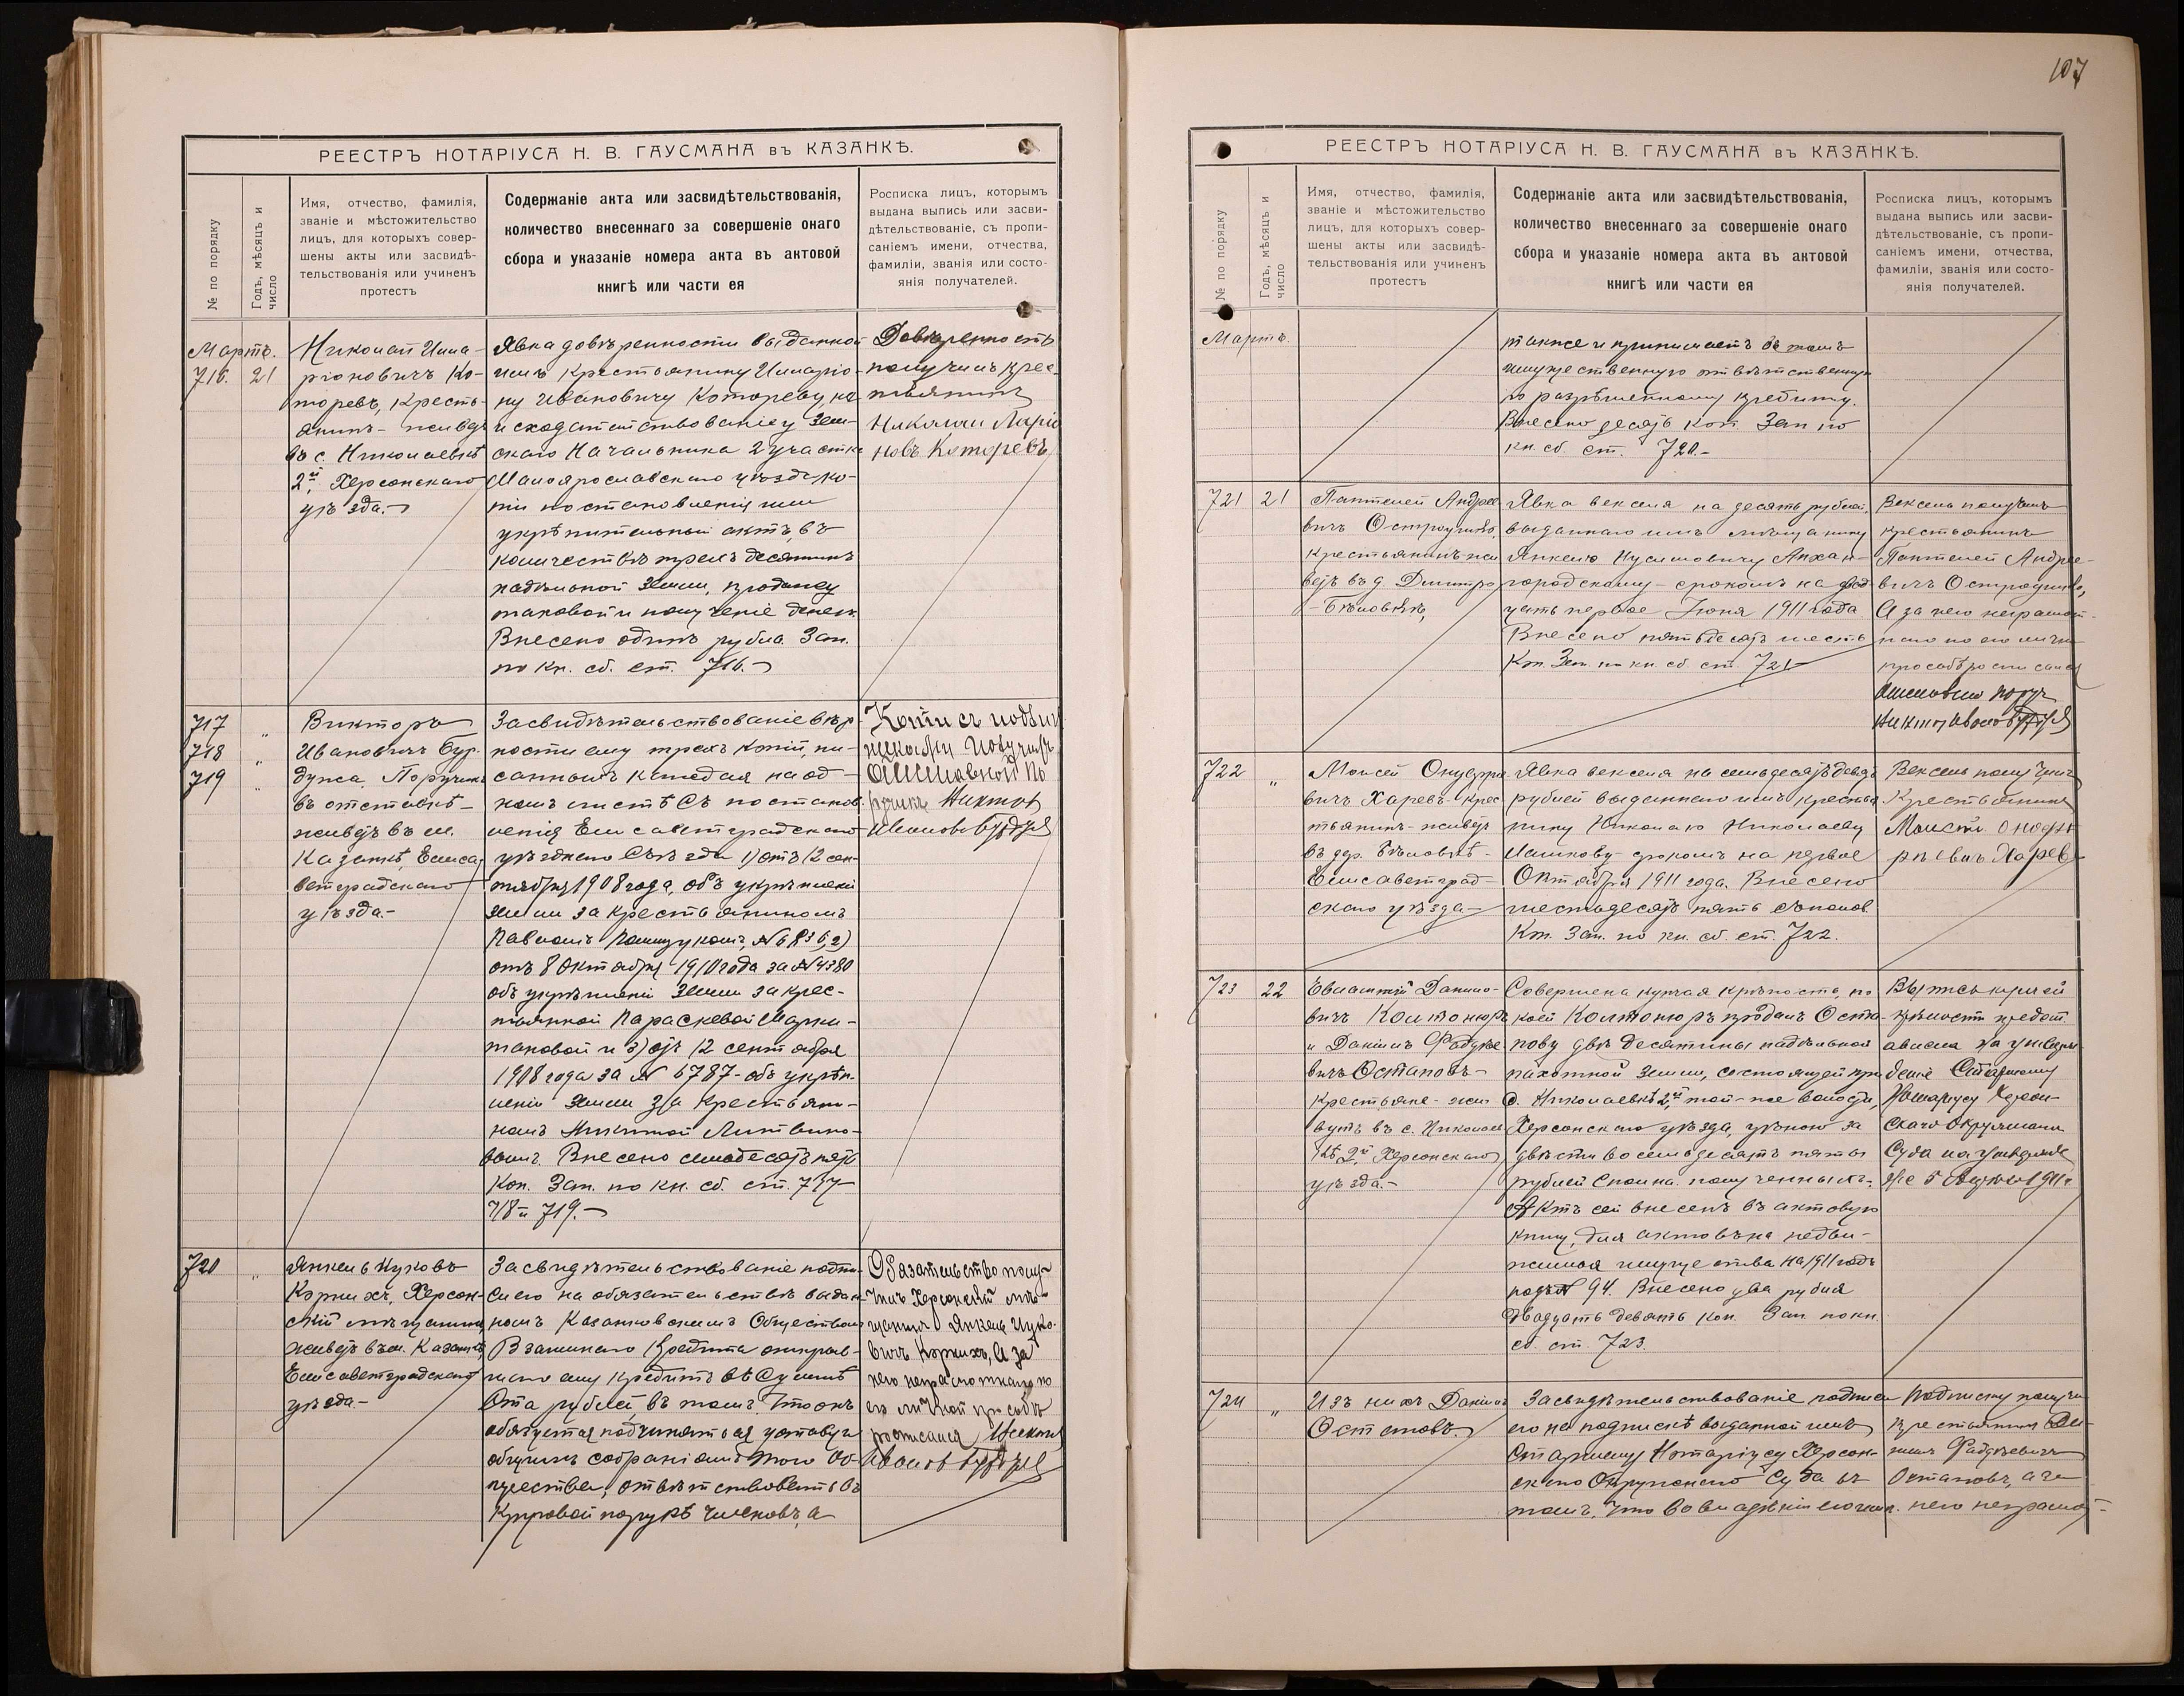 107
РЕЕСТРЪ НОТАРІУСА Н. В. ГАУСМАНА въ КАЗАНКѢ.
№ по порядку
Годъ, мѣсяцъ и
число
Имя, отчество, фамилія,
званіе и мѣстожительство
лицъ, для которыхъ совер-
шены акты или засвидѣ-
тельствованія или учиненъ
протестъ
Содержаніе акта или засвидѣтельствованія,
количество внесеннаго за совершеніе онаго
сбора и указаніе номера акта въ актовой
книгѣ или части ея
Росписка лицъ, которымъ
выдана выпись или засви-
дѣтельствованіе, съ пропи-
саніемъ имени, отчества,
фамиліи, званія или состо-
янія получателей.
Мартъ.
716. 21
Николай Илла-
ріоновичъ Ко-
торевъ, кресть-
янинъ - живетъ
въ с. Николаевкѣ
2й, Херсонскаго
уѣзда.-
Явка довѣренности выданной
имъ крестьянину Илларіо-
ну Ивановичу Которову, на
исходатайствованіе у Зем-
скаго Начальника 2 участка
Малоярославскаго уѣзда ко-
піи постановленія или
укрѣпительный актъ, въ
количествѣ трехъ десятинъ
надѣльной земли, продажу
таковой и полученіе денегъ.
Внесено одинъ рубль. Зап.
по кн. сб. ст. 716.-
Довѣренность
получилъ крес-
тьянинъ
Николай Ларіо
новъ Которевъ
717 "
718 "
719 "
Викторъ
Ивановичъ Бур-
дужа, Поручикъ
въ отставкѣ -
живетъ въ м.
Казанкѣ, Елиса-
ветградскаго
уѣзда.-
Засвидѣтельствованіе вѣр-
ности ему трехъ копій, пи-
санныхъ каждая на од-
номъ листѣ съ постанов-
ленія Елисаветградскаго
уѣзднаго Съѣзда 1) отъ 12 сен-
тября 1908 года, объ укрѣпленіи
земли за крестьяниномъ
Павломъ № 6836, 2)
отъ 8 Октября 1910 года за № 4380
объ укрѣпленіи земли за крес-
тьянкой Параскевой Марки-
тановой и 3) отъ 12 сентября
1908 года за № 6787 - объ укрѣп-
леніи земли за крестьяни-
номъ Никитой Литвино-
вымъ. Внесено семьдесятъ пять
коп. Зап. по кн. сб. ст. 717
718 и 719.-
Копіи съ
получилъ
отставной По
ручикъ Виктор
Ивановъ Бурдужа
720 "
Янкель Ицковъ
Коршхъ, Херсон-
скій мѣщанинъ,
живетъ въ м. Казанкѣ,
Елисаветградскаго
уѣзда.-
Засвидѣтельствованіе подпи-
си его на обязательствѣ выдан-
номъ Казанковскимъ Обществомъ
Взаимнаго Кредита открыв-
шаго ему кредитъ въ суммѣ
Ста рублей, въ томъ, что онъ
обязуется подчиняться уставу и
общимъ собраніямъ того Об-
щества, отвѣтствовать въ
круговой порукѣ членовъ, а
Обязательство полу-
чилъ Херсонскій мѣ-
щанинъ Янкель Ицко-
вичъ Коршхъ, а за
него неграмотнаго по
его личной просьбѣ
росписался Викторъ
Ивановъ Бурдужа
РЕЕСТРЪ НОТАРІУСА Н. В. ГАУСМАНА въ КАЗАНКѢ.
№ по порядку
Годъ, мѣсяцъ и
число
Имя, отчество, фамилія,
званіе и мѣстожительство
лицъ, для которыхъ совер-
шены акты или засвидѣ-
тельствованія или учиненъ
протестъ
Содержаніе акта или засвидѣтельствованія,
количество внесеннаго за совершеніе онаго
сбора и указаніе номера акта въ актовой
книгѣ или части ея
Росписка лицъ, которымъ
выдана выпись или засви-
дѣтельствованіе, съ пропи-
саніемъ имени, отчества,
фамиліи, званія или состо-
янія получателей.
Мартъ.
также и принимаетъ въ томъ
имущественную отвѣтственную
по разрѣшенному кредиту.
Внесено десять коп. Зап. по
кн. сб. ст. 720.-
721 21
Пантелей Андрее
вичъ Остроушко,
крестьянинъ жи
ветъ въ д. Дмитро
- Бѣловкѣ,
Явка векселя на десять рублей,
выданнаго имъ мѣщанину
Янкелю Нусимовичу Анхан-
городскому - срокомъ на двад
цать первое Іюня 1911 года
Внесено пятьдесятъ шесть
Коп. Зап. по кн. сб. ст. 721-
Вексель получилъ
крестьянинъ
Пантелей Андрее-
вичъ Остроушко,
А за него неграмот-
наго по его лично
просьбѣ росписался
отставной поруч
Виктор Иванов Бурдужа
722 "
Моисей Онуфріе
вичъ Харевъ - крес
тьянинъ - живетъ
въ дер. Бѣловкѣ -
Елисаветград-
скаго уѣзда -
Явка векселя на семьдесятъ девять
рублей выданнаго имъ крестья
нину Николаю Николаеву
Машкову срокомъ на первое
Октября 1911 года. Внесено
шестьдесятъ пять съ полов.
Коп. Зап. по кн. сб. ст. 722.
Вексель получилъ
Крестьянинъ
Моисей Оноф-
ріевич Харев
723 22
Евлампій Данило-
вичъ Колтонюръ
и Даніилъ Фадѣе
вичъ Остаповъ -
крестьяне - жи
вутъ въ с. Николаев
кѣ 2й, Херсонскаго
уѣзда.-
Совершена купчая крѣпость, по
коей Колтонюръ продалъ Оста-
пову двѣ десятины надѣльной
пахотной земли, состоящей при
с. Николаевкѣ 2й, той-же волости,
Херсонскаго уѣзда, цѣною за
двѣсти восемьдесятъ пять
рублей сполна полученныхъ.
Актъ сей внесенъ въ актовую
книгу, для актовъ на недви-
жимыя имущества на 1911 годъ
подъ № 94. Внесено два рубля
двадцать девять коп. Зап. по кн.
сб. ст. 723.
Выпись купчей
крѣпости предст
авлена на утверж
деніе Старшему
Нотаріусу Херсон-
скаго Окружнаго
Суда
724 "
Изъ нихъ Даніилъ
Остаповъ
Засвидѣтельствованіе подписи
его на подпискѣ выданной имъ
Старшему Нотаріусу Херсон-
скаго Окружнаго Суда въ
томъ, что во владѣніи его
Подписку получи
крестьянинъ Да-
ніилъ Фадѣевичъ
Остаповъ, а за
него неграмот-